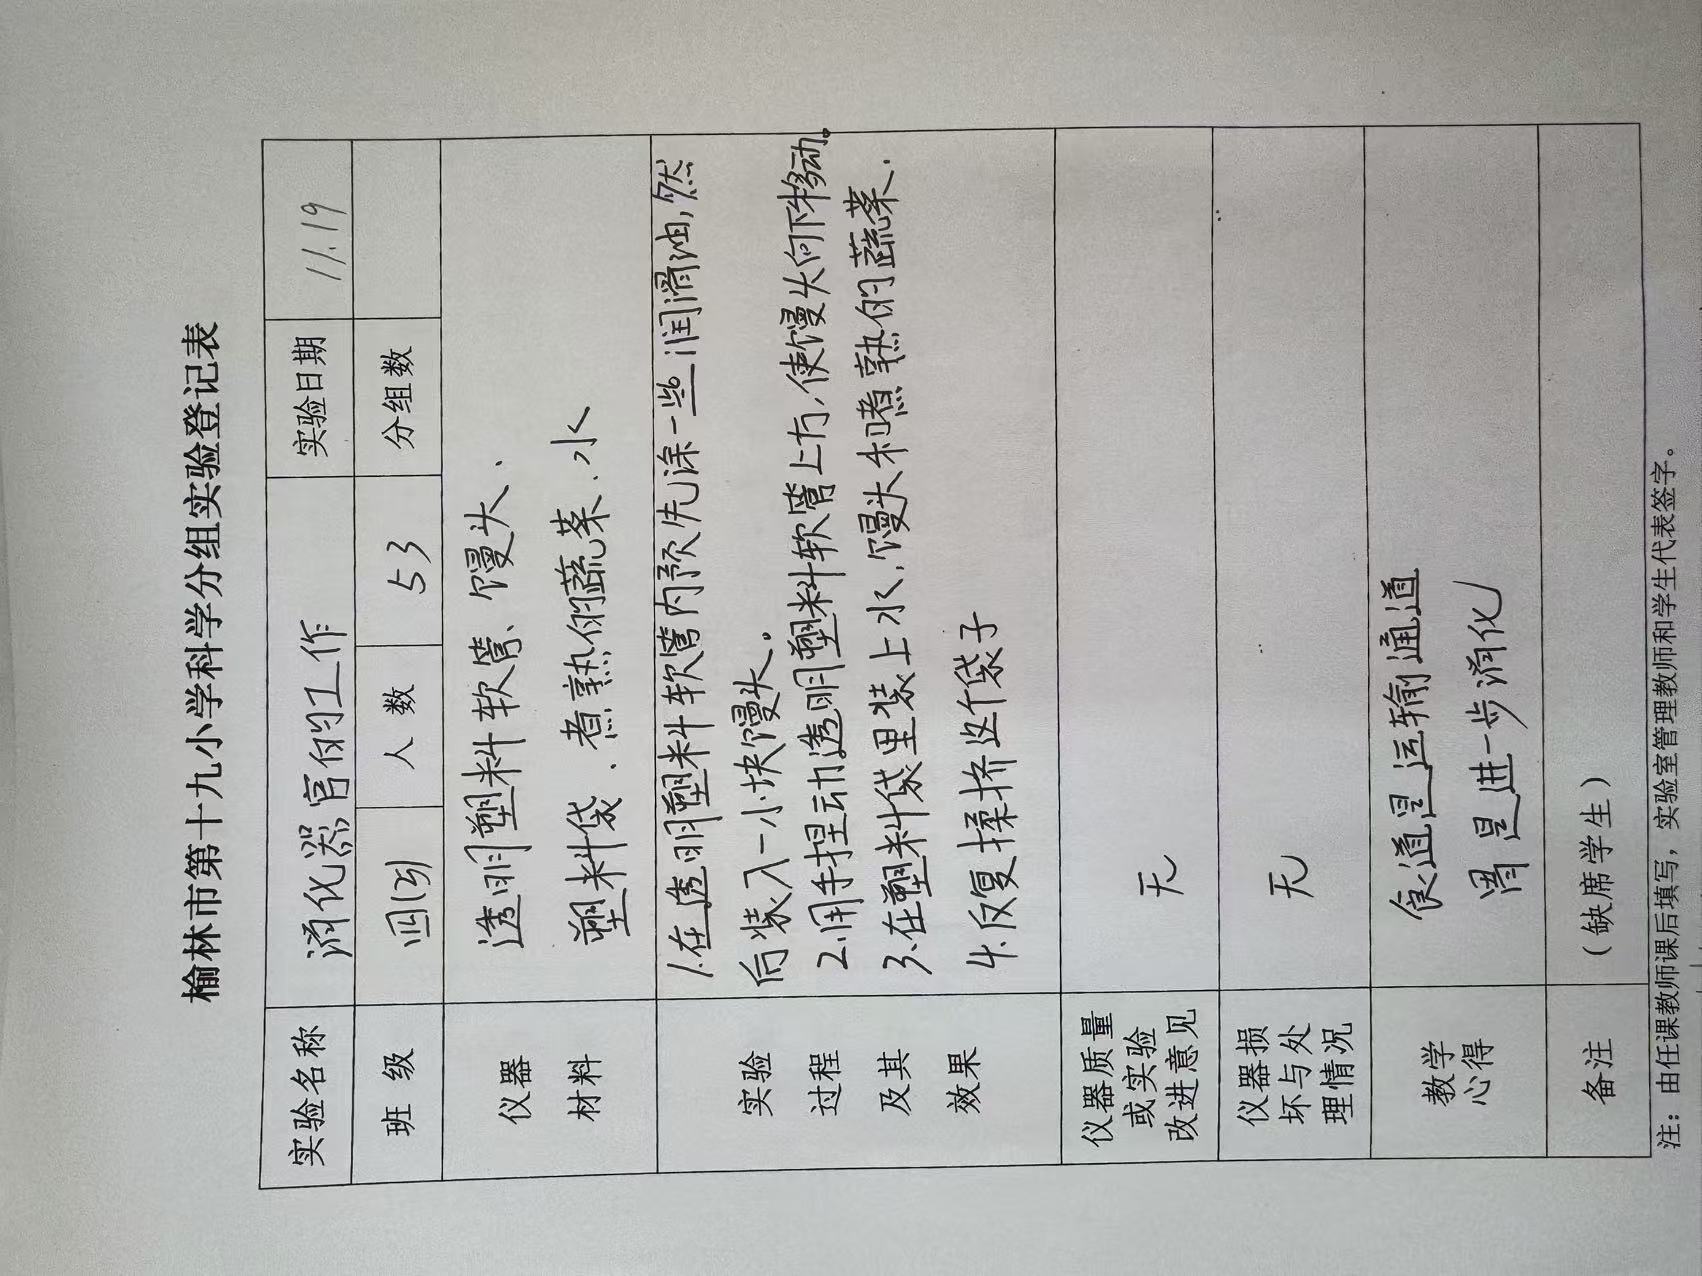 榆林市第十九小学科学分组实验登记表
实验名称 消化器官的工作 实验日期 11.19
班 级 四(3) 人 数 53 分组数
仪器 透明塑料软管、馒头、
材料 塑料袋、煮熟的蔬菜、水
1.在透明塑料软管内预先涂一些润滑油,然
实验 后装入一小块馒头。
过程 2.用手捏动透明塑料软管上方,使馒头向下移动。
及其 3.在塑料袋里装上水,馒头和嗜熟的蔬菜.
效果 4.反复揉挤这个袋子
仪器质量
或实验 无
改进意见
仪器损
坏与处 无
理情况
教学 食道是运输通道
心得 胃是进一步消化
备注 (缺席学生)
注：由任课教师课后填写，实验室管理教师和学生代表签字。